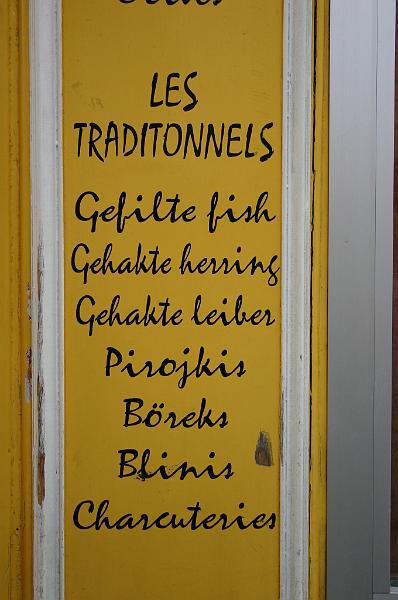 LES
TRADITONNELS
Gefilte fish
Gehakte herring
Gehakte leiber
Pirojkis
Böreks
Blinis
Charcuteries